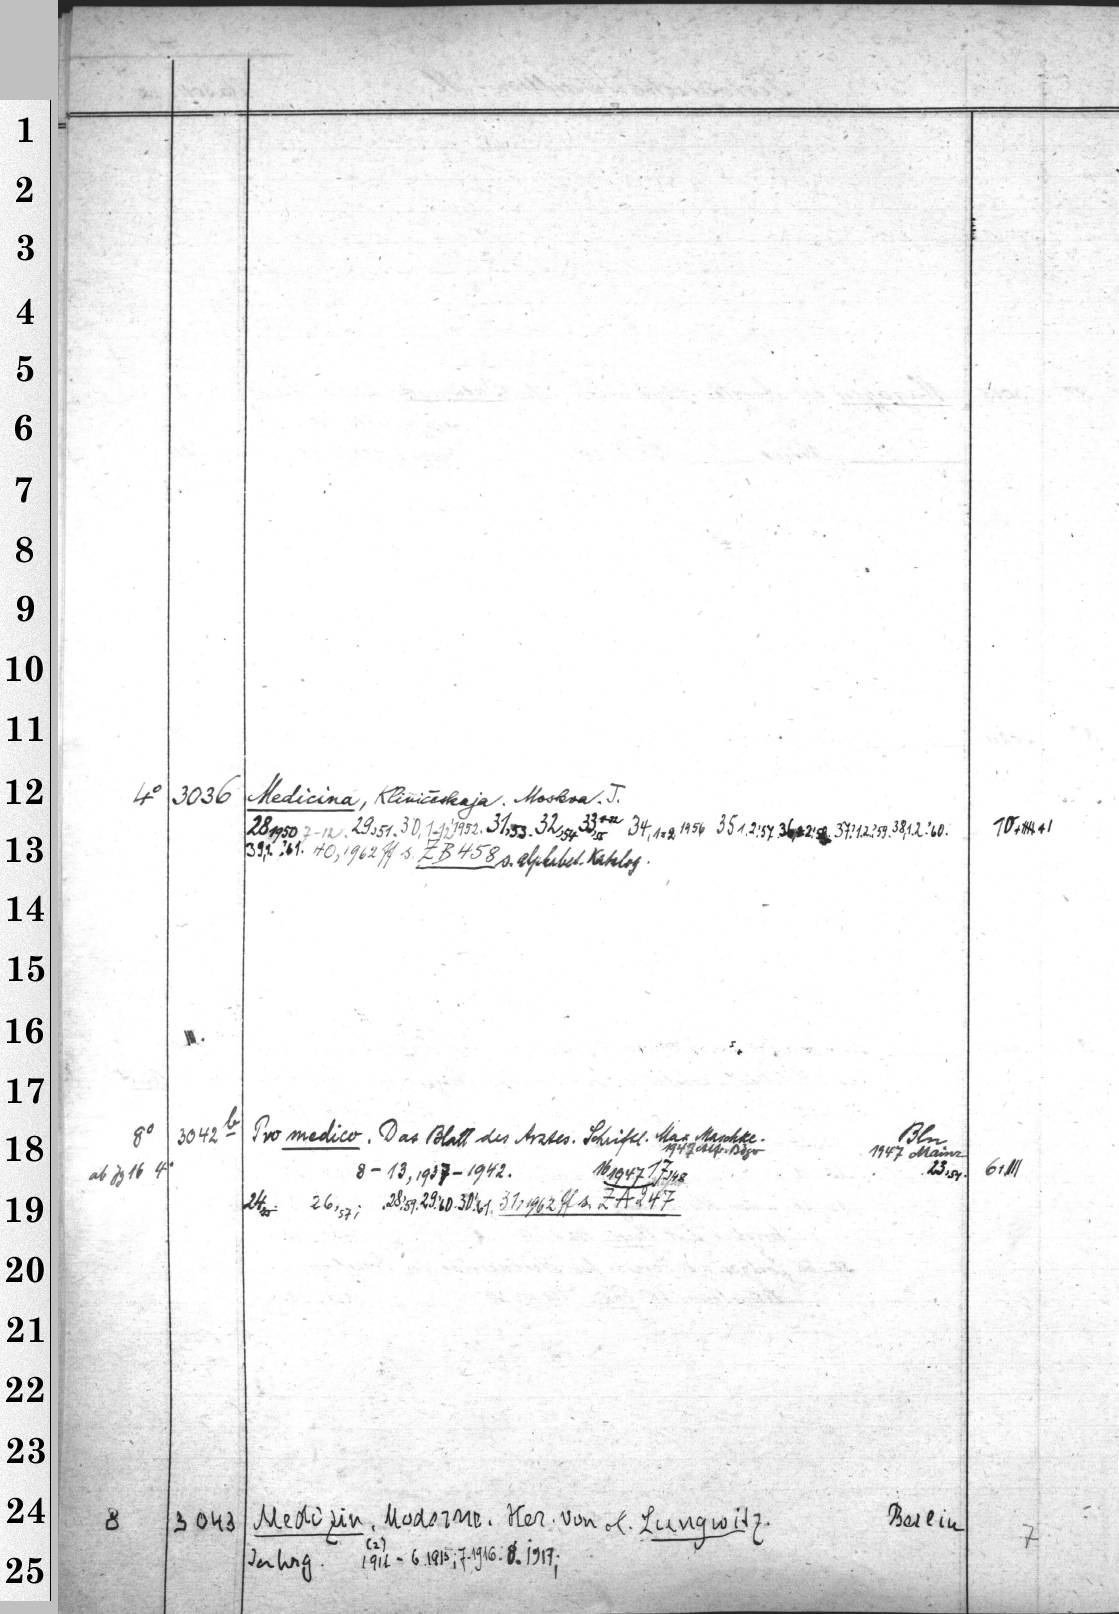 1
2
3
4
5
6
7
8
9
10
11
12 4° 3036 Medicina, Kliničeskaja. Moskva. T.
28,1950, 7-12. 29,51. 30, 1952. 31,53. 32,54 33,55 34, 1+2 1956 35 1.2:'57 36 37:1.2:'59. 38,1.2.'60. 10
13 39, '61. 40, 1962 ff s. ZB 458 s. alphabet. Katalog.
14
15
16
17
18 8° 3042 b Pro medico. Das Blatt des Arztes. Schriftl. Max Maschke. Bln
1947 1947 Mainz
ab Jg 16 4° 8-13, 1937-1942. 16 1947 17,48 23,54. 6+III
19 24,55 26,57; 28,59. 29,60. 30,61. 31, 1962 ff s. ZA 247
20
21
22
23
24 8 3043 Medizin, Moderne. Her. von Lungwitz. Berlin 7
(2)
25 Jahrg. 1911 - 6.1915; 7.1916. 8. 1917;